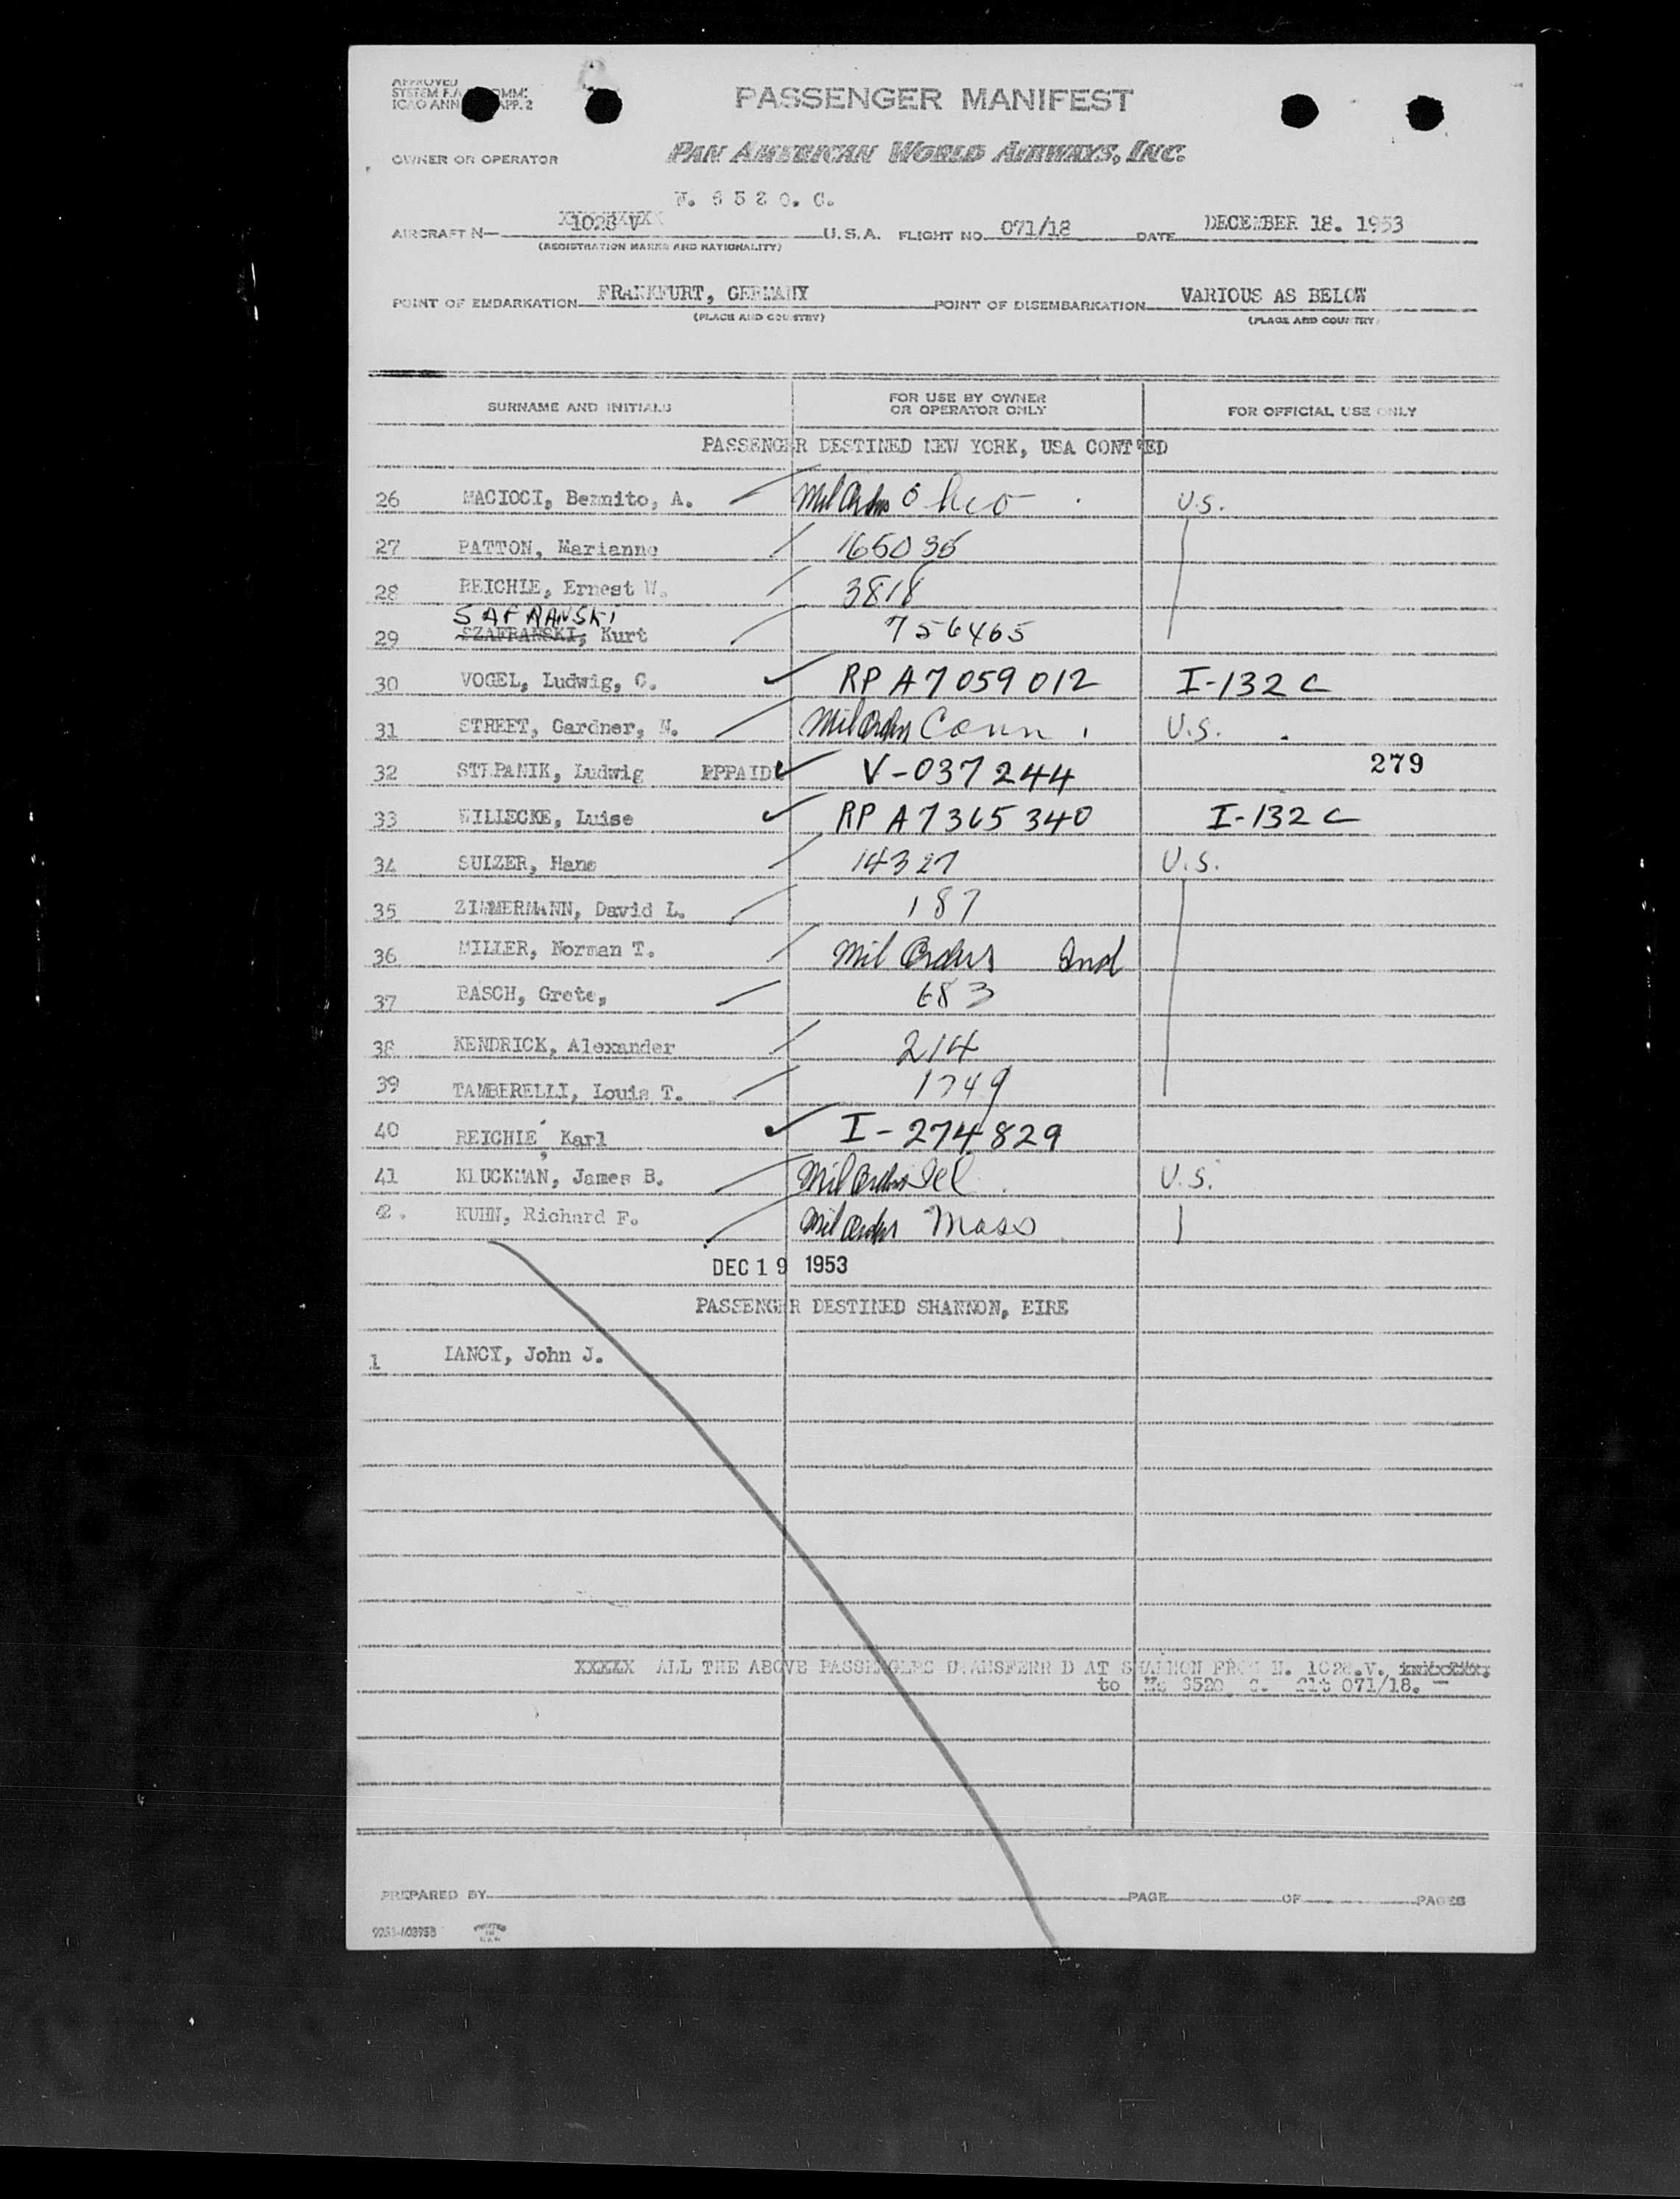 APPROVED
SYSTEM F.A. COMM:
ICAO ANN APP. 2
PASSENGER MANIFEST
OWNER OR OPERATOR PAN AMERICAN WORLD AIRWAYS, INC.
N. 6520. C.
AIRCRAFT N— 1028 V U.S.A. FLIGHT NO. 071/18 DATE DECEMBER 18. 1953
(REGISTRATION MARKS AND NATIONALITY)
POINT OF EMBARKATION FRANKFURT, GERMANY POINT OF DISEMBARKATION VARIOUS AS BELOW
(PLACE AND COUNTRY) (PLACE AND COUNTRY)
SURNAME AND INITIALS FOR USE BY OWNER OR OPERATOR ONLY FOR OFFICIAL USE ONLY
PASSENGER DESTINED NEW YORK, USA CONT'ED
26 MACIOCI, Bennito, A. Mil Orders Ohio U.S.
27 PATTON, Marianne 165036
28 REICHLE, Ernest W. 3818
SAFRANSKI
29 SZAFRANSKI, Kurt 756465
30 VOGEL, Ludwig, C. RP A7059012 I-132C
31 STREET, Gardner, N. Mil Orders Conn. U.S.
32 STEPANIK, Ludwig PPPAID V-037244 279
33 WILLECKE, Luise RP A7365340 I-132C
34 SULZER, Hans 14327 U.S.
35 ZIMMERMANN, David L. 187
36 MILLER, Norman T. Mil Orders Ind
37 BASCH, Grete, 683
38 KENDRICK, Alexander 214
39 TAMBERELLI, Louis T. 1749
40 REICHLE, Karl I-274829
41 KLUCKMAN, James B. Mil Orders Ill U.S.
42. KUHN, Richard F. Mil Orders Mass
DEC 19 1953
PASSENGER DESTINED SHANNON, EIRE
1 LANCY, John J.
XXXXX ALL THE ABOVE PASSENGERS TRANSFERR D AT SHANNON FROM N. 1028.V.,
to N. 6520 C. flt 071/18.
PREPARED BY PAGE OF PAGES
PRINTED IN U.S.A.